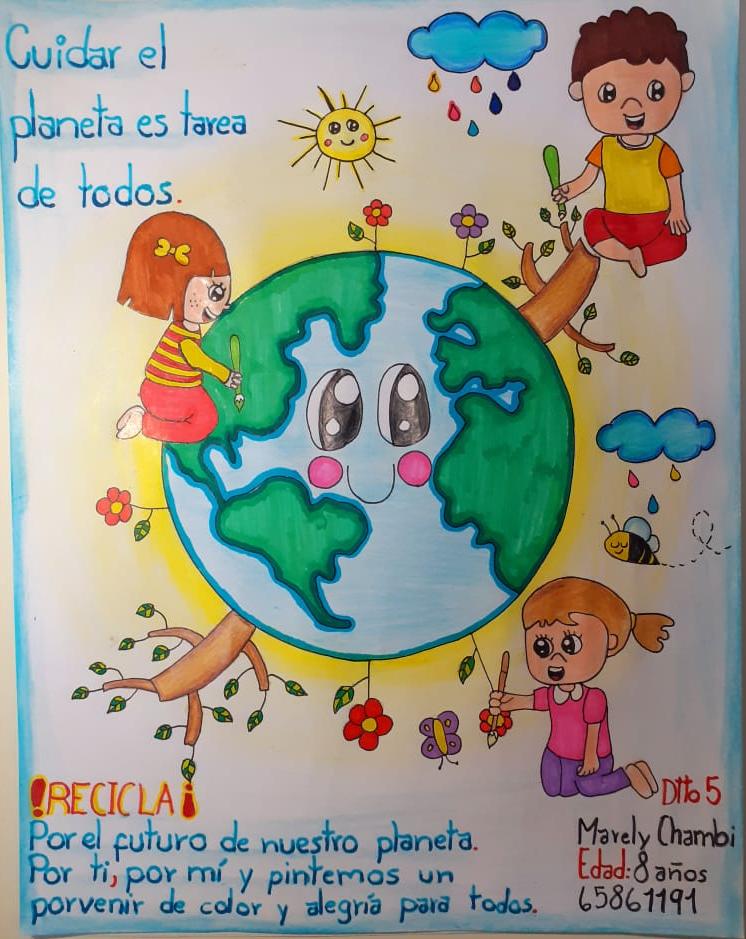 Cuidar el
planeta es tarea
de todos.
!RECICLA¡
Por el futuro de nuestro planeta.
Por ti, por mí y pintemos un
porvenir de color y alegría para todos.
Dtto 5
Marely Chambi
Edad: 8 años
65861191